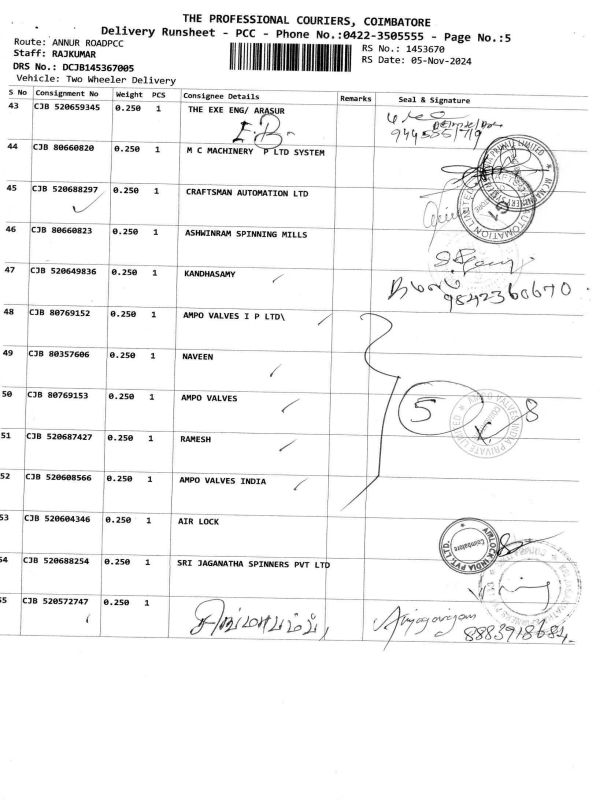 THE PROFESSIONAL COURIERS, COIMBATORE
Delivery Runsheet - PCC - Phone No.:0422-3505555 - Page No.:5
Route: ANNUR ROADPCC
RS No.: 1453670
Staff: RAJKUMAR
RS Date: 05-Nov-2024
DRS No.: DCJB145367005
Vehicle: Two Wheeler Delivery
S No Consignment No Weight PCS Consignee Details Remarks Seal & Signature
43 CJB 520659345 0.250 1 THE EXE ENG/ ARASUR
E.B-
44 CJB 80660820 0.250 1 M C MACHINERY P LTD SYSTEM
45 CJB 520688297 0.250 1 CRAFTSMAN AUTOMATION LTD
46 CJB 80660823 0.250 1 ASHWINRAM SPINNING MILLS
47 CJB 520649836 0.250 1 KANDHASAMY
9842360670
48 CJB 80769152 0.250 1 AMPO VALVES I P LTD\
49 CJB 80357606 0.250 1 NAVEEN
50 CJB 80769153 0.250 1 AMPO VALVES
5
8
AMPO VALVES INDIA PRIVATE LIMITED
51 CJB 520687427 0.250 1 RAMESH
52 CJB 520608566 0.250 1 AMPO VALVES INDIA
53 CJB 520604346 0.250 1 AIR LOCK
AIRLOCK INDIA PVT. LTD.
Coimbatore
54 CJB 520688254 0.250 1 SRI JAGANATHA SPINNERS PVT LTD
55 CJB 520572747 0.250 1
8883918684